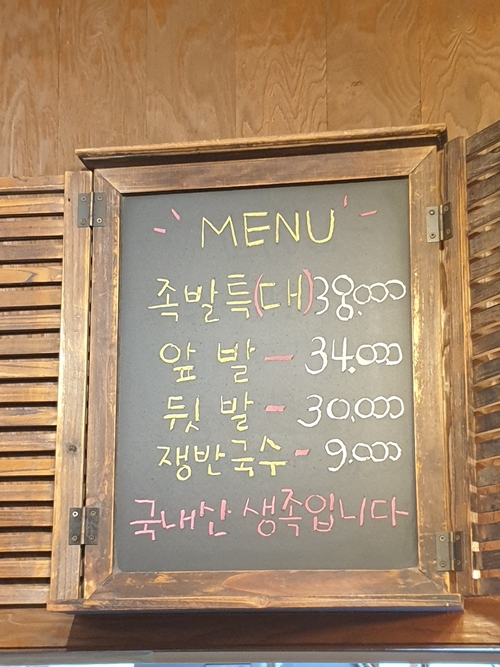 MENU
족발특(대) 38,000
앞발 - 34,000
뒷발 - 30,000
쟁반국수 - 9,000
국내산 생족입니다